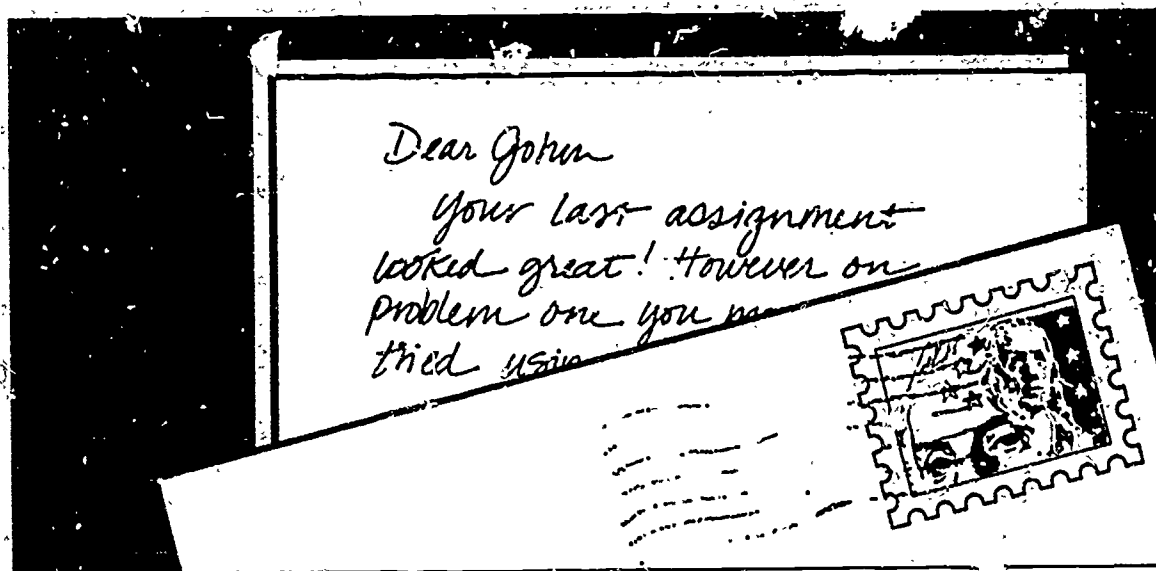 Dear John
Your last assignment
looked great! However on
problem one you
tried